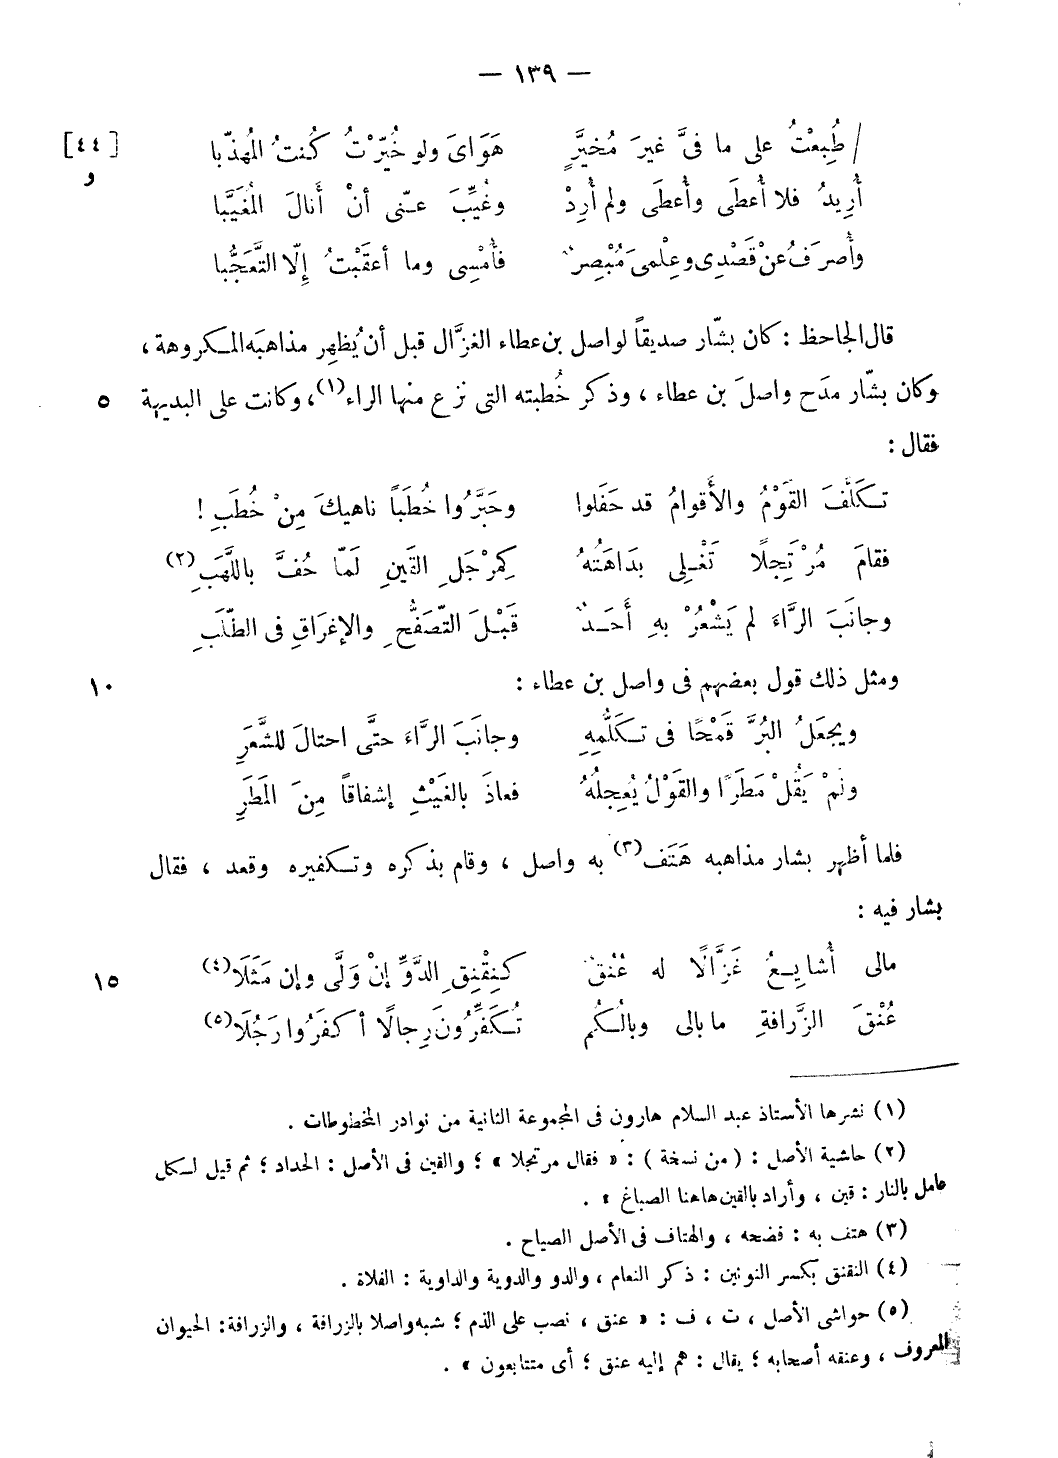 — ١٣٩ —
/ طُبِعْتُ على ما فىَّ غيرَ مُخيَّرٍ هَوَاىَ ولو خُيّرْتُ كُنتُ المُهذّبا [٤٤]
و
أُرِيدُ فلا أُعطَى وأُعطَى ولم أُرِدْ وغُيِّبَ عنّى أنْ أَنالَ المُغَيَّبا
وأُصرَفُ عنْ قَصْدِى وعِلْمِىَ مُبْصِرٌ فأُمْسِى وما أعقَبْتُ إلّا التَّعَجُّبا
قال الجاحظ : كان بشّار صديقاً لواصل بن عطاء الغزَّال قبل أن يُظهِر مذاهبَه المكروهة ،
وكان بشّار مدَح واصلَ بن عطاء ، وذكر خُطبته التى نزع منها الراء(١)، وكانت على البديهة ٥
فقال :
تكلّفَ القوْمُ والأَقوامُ قد حَفَلوا وحَبَّرُوا خُطَباً ناهيكَ مِنْ خُطَبِ !
فقامَ مُرْتَجِلًا تَغْلِى بدَاهَتُهُ كمِرْجَلِ القَينِ لَمّا حُفَّ باللَّهَبِ(٢)
وجانَبَ الرَّاءَ لم يَشْعُرْ بهِ أَحَدٌ قَبْلَ التّصَفُّحِ والإغرَاقِ فى الطّلَبِ
ومثل ذلك قول بعضهم فى واصل بن عطاء : ١٠
ويجعَلُ البُرَّ قَمْحًا فى تكَلُّمِهِ وجانَبَ الرَّاءَ حتَّى احتالَ للشَّعَرِ
ولمْ يَقُلْ مَطَرًا والقَوْلُ يُعجِلُهُ فعاذَ بالغَيْثِ إشفاقاً مِنَ المَطَرِ
فلما أظهر بشار مذاهبه هَتَف(٣) به واصل ، وقام بذكره وتكفيره وقعد ، فقال
بشار فيه :
مالى أُشايِعُ غَزَّالًا له عُنُقٌ كنِقْنِقِ الدَّوِّ إنْ وَلَّى وإن مَثَلَا(٤) ١٥
عُنْقَ الزَّرافةِ ما بالى وبالُكُم تُكَفِّرُونَ رِجالًا أكفَرُوا رَجُلَا(٥)
(١) نشرها الأستاذ عبد السلام هارون فى المجموعة الثانية من نوادر المخطوطات .
(٢) حاشية الأصل : ( من نسخة ) : « فقال مرتجلا » ؛ والقين فى الأصل : الحداد ؛ ثم قيل لكل
عامل بالنار : قين ، وأراد بالقين هاهنا الصباغ » .
(٣) هتف به : فضحه ، والهتاف فى الأصل الصياح .
(٤) النقنق بكسر النونين : ذكر النعام ، والدو والدوية والداوية : الفلاة .
(٥) حواشى الأصل ، ت ، ف : « عنق ، نصب على الذم ؛ شبه واصلا بالزرافة ، والزرافة : الحيوان
المعروف ، وعنقه أصحابه ؛ يقال : هم إليه عنق ؛ أى متتابعون » .